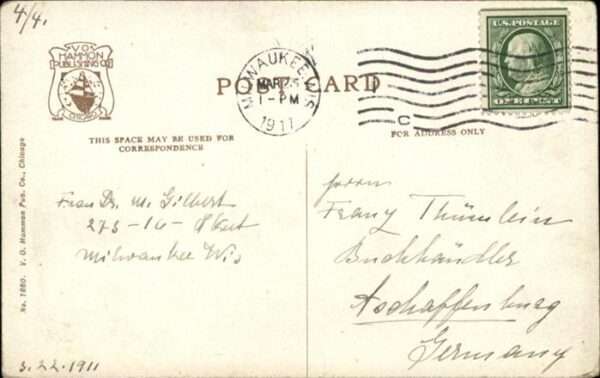 4/4.
V.O.
HAMMON
PUBLISHING CO.
CHICAGO
MILWAUKEE, WIS
MAR
1-PM
1911
C
U.S. POSTAGE
ONE CENT
POST CARD
THIS SPACE MAY BE USED FOR
CORRESPONDENCE
FOR ADDRESS ONLY
No. 1880. V. O. Hammon Pub. Co., Chicago
Frau Dr. M. Gilbert
275-16-Street
Milwaukee Wis
3.22.1911
Herrn
Franz Thümlein
Buchhändler
Aschaffenburg
Germany